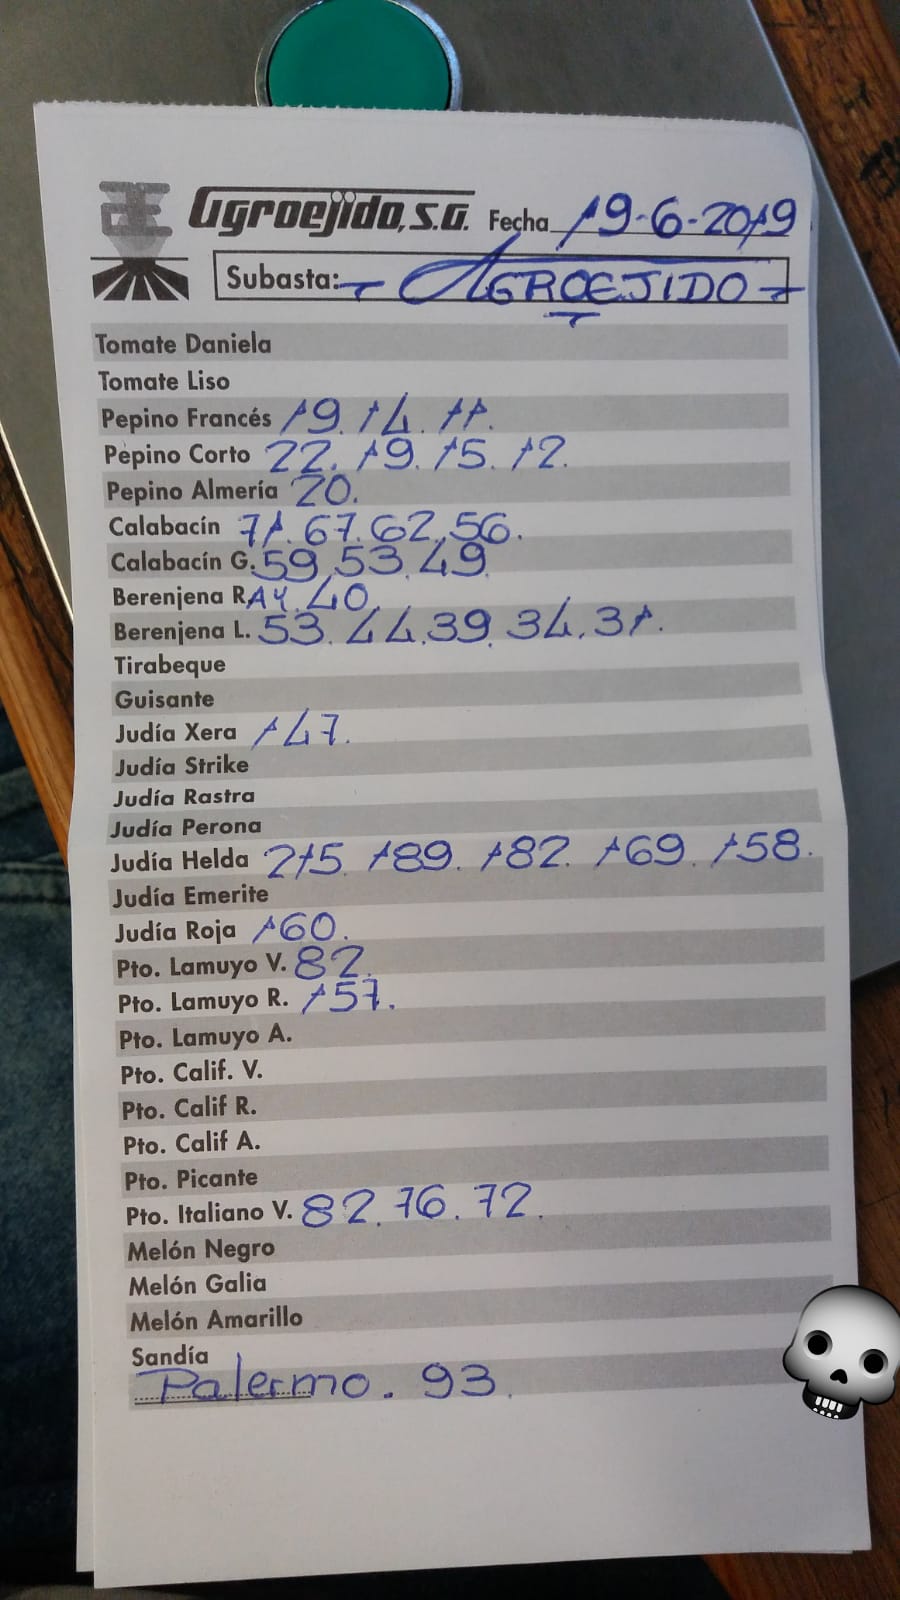 Agroejido, S.A. Fecha 19-6-2019
Subasta: - AGROEJIDO -
Tomate Daniela
Tomate Liso
Pepino Francés 19. 14. 11.
Pepino Corto 22. 19. 15. 12.
Pepino Almería 20.
Calabacín 71. 67. 62. 56.
Calabacín G. 59. 53. 49
Berenjena RAY. 40.
Berenjena L. 53. 44. 39. 34. 31.
Tirabeque
Guisante
Judía Xera 147.
Judía Strike
Judía Rastra
Judía Perona
Judía Helda 215. 189. 182. 169. 158.
Judía Emerite
Judía Roja 160.
Pto. Lamuyo V. 82.
Pto. Lamuyo R. 157.
Pto. Lamuyo A.
Pto. Calif. V.
Pto. Calif R.
Pto. Calif A.
Pto. Picante
Pto. Italiano V. 82. 76. 72.
Melón Negro
Melón Galia
Melón Amarillo
Sandía
Palermo. 93.